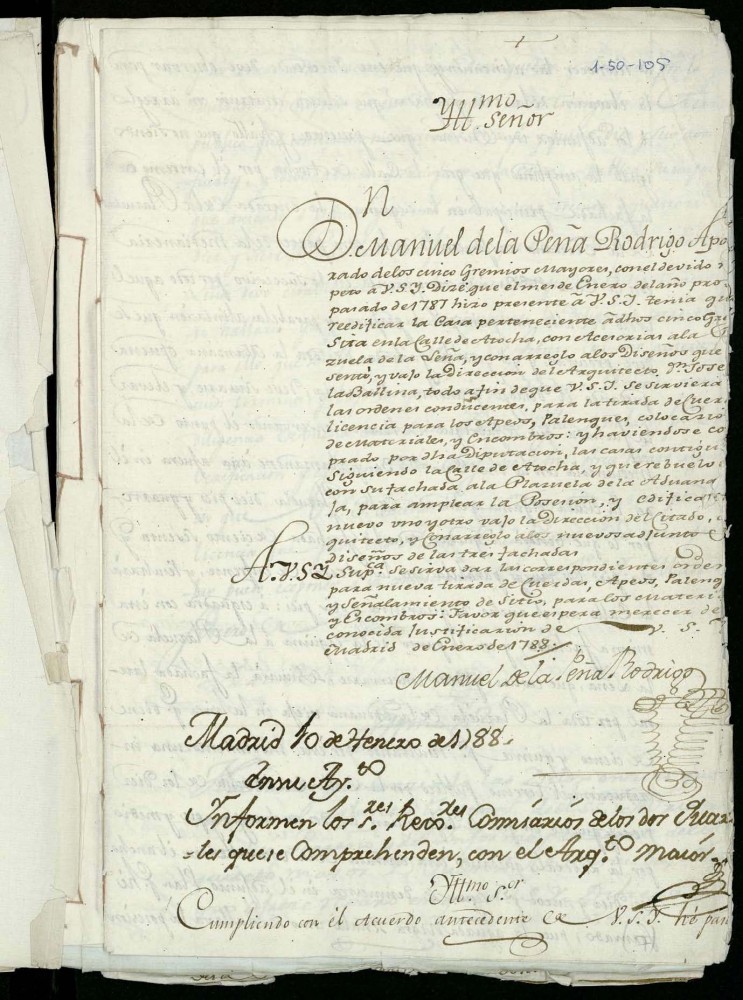 1-50-105
Yll.mo Señor
D.n Manuel dela Peña Rodrigo Apo
rado delos cinco Gremios Mayores, con el devido
peto à V.S.Y. Dize que el mes de Enero del año pro
pasado de 1787 hizo presente à V.S.Y. tenia que
reedificar la Casa perteneciente àdhos cinco Gre
Sita enla Calle de Atocha, con Acesorias ala
zuela de la Leña, y con arreglo alos Diseños que
sentò, y vajo la Direccion del Arquitecto D.n Jose
la Ballina, todo afin deque V.S.Y. se sirviera
las ordenes conducentes, para la tirada de Cuer
licencia para los Apeos, Palenque, colocacio
de Materiales, y Encombros: y haviendose co
prado por dha Diputacion, las casas contigu
siguiendo la Calle de Atocha, y que rebuelv
con su fachada ala Plazuela de la Aduana
ja, para amplear la Posesion, y edificar
nuevo uno y otro vajo la Direccion del Citado,
quitecto, y con arreglo alos nuevos adjunto
diseños de las tres fachadas
A.V.S.Y. Sup.ca se sirva dar las correspondientes orden
para nueva tirada de Cuerdas, Apeos, Palenq
y Señalamiento de Sitio, para los Materi
y Escombros: Favor que espera merecer de
conocida Justificacion de V. S.
Madrid de Enero de 1788.
Manuel de la Peña Rodrigo
Madrid 10 de Henero de 1788.
Enru Ay.to
Informen los s.res Rexo.res Comisarios delos dos Quar
les que se Comprehenden, con el Arq.to maior
Yll.mo S.or
Cumpliendo con el Acuerdo antecedente de V.S.Y. hé pa